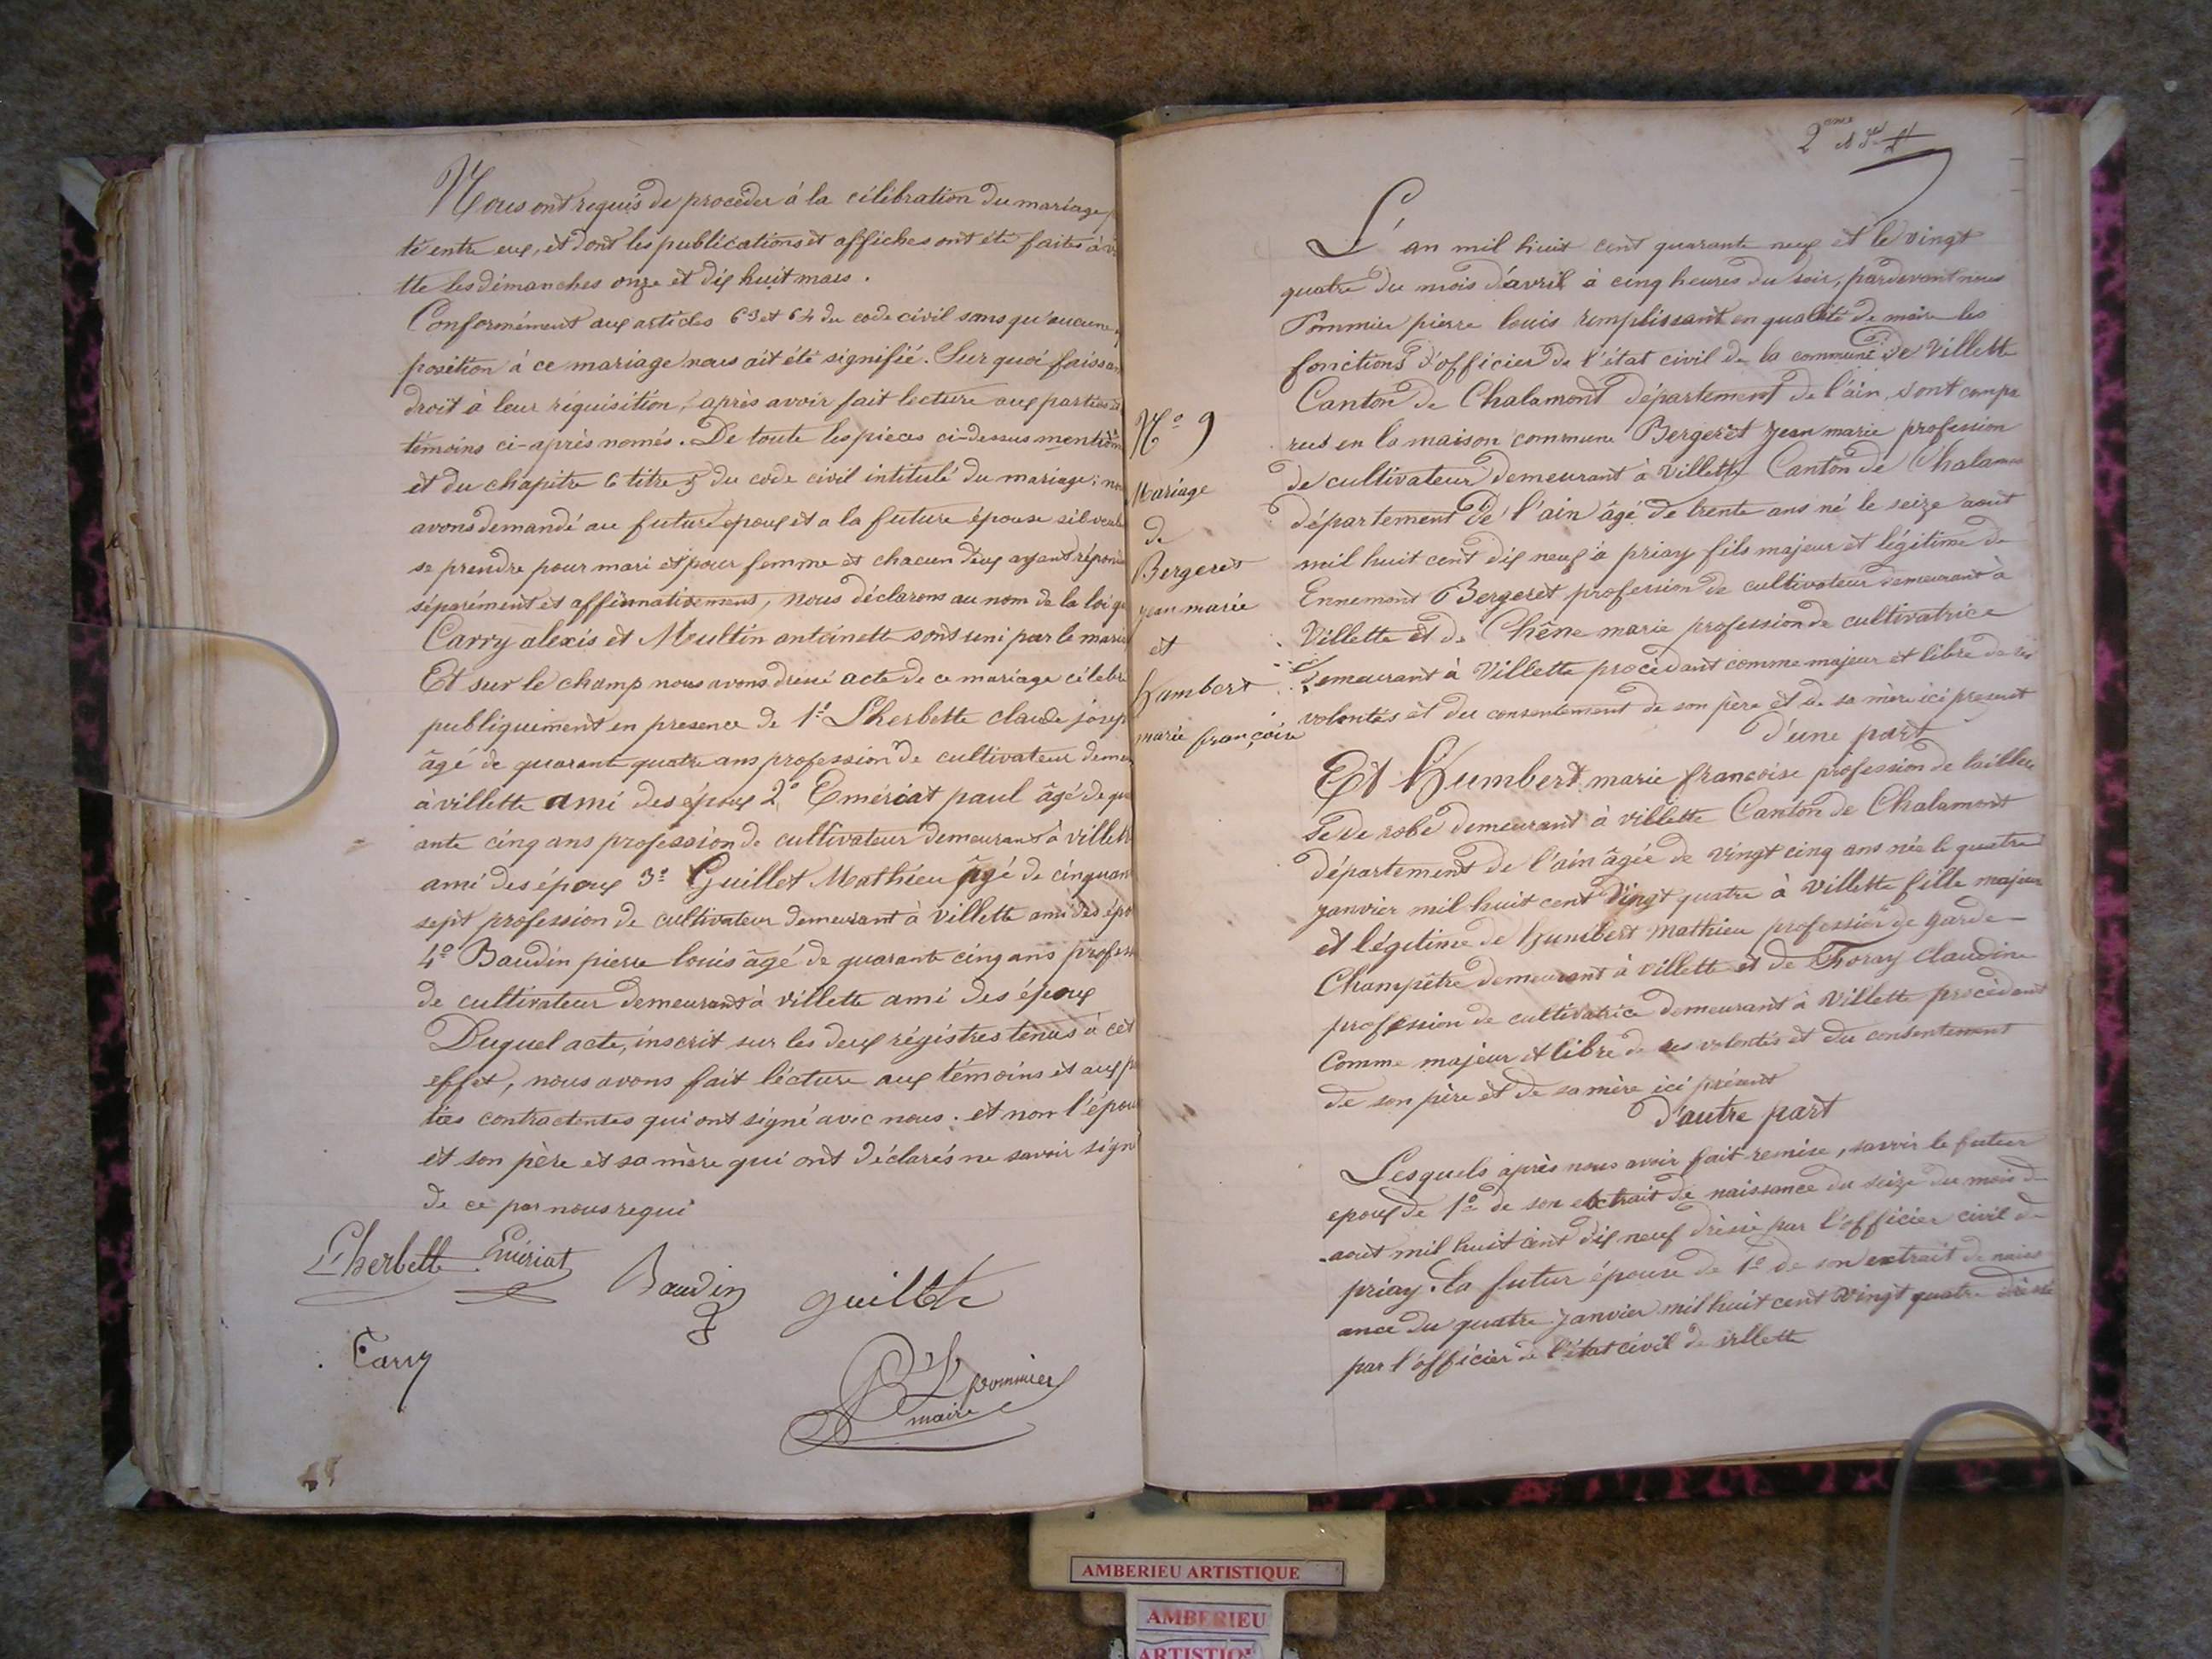 Nous ont requis de procéder à la célébration du mariage
té entre eux, et dont les publications et affiches ont été faites à vi
tte les dimanches onze et dix huit mars.
Conformément aux articles 63 et 64 du code civil sans qu'aucune
position à ce mariage nous ait été signifié. Sur quoi faisan
droit à leur réquisition, après avoir fait lecture aux parties et
témoins ci-après només. De toute les pièces ci-dessus mentionn
et du chapitre 6 titre 5 du code civil intitulé du mariage; nou
avons demandé au futur epoux et a la future épouse s'il veule
se prendre pour mari et pour femme et chacun deux ayant répondu
séparément et affirmativement, nous déclarons au nom de la loi qu
Carry alexis et Moultin antoinette sont uni par le maria
Et sur le champ nous avons dressé acte de ce mariage célébré
publiquement en presence de 1º Lherbette claude josep
âgé de quarante quatre ans profession de cultivateur demeu
à villette ami des époux 2º Emériat paul âgé de qu
ante cinq ans profession de cultivateur demeurant à villett
ami des époux 3º Guillet Mathieu âgé de cinquan
sept profession de cultivateur demeurant à villette ami des épo
4º Baudin pierre louis âgé de quarante cinq ans professi
de cultivateur demeurant à villette ami des époux
Duquel acte, inscrit sur les deux régistres tenus à cet
effet, nous avons fait lécture aux témoins et aux pa
ties contractentes qui ont signé avec nous. et non l'épou
et son père et sa mère qui ont déclarés ne savoir sign
de ce par nous requi
Lherbette Emériat Baudin guillet
Carry
pommier
maire
2eme
Nº 9
Mariage
de
Bergeret
jean marie
et
humbert
marie françoise
L'an mil huit cent quarante neuf et le vingt
quatre du mois d'avril à cinq heures du soir, pardevant nous
Pommier pierre louis remplissant en qualité de maire les
fonctions d'officier de l'état civil de la commune de Villette
Canton de Chalamont département de l'ain, sont compa
rus en la maison commune Bergeret jean marie profession
de cultivateur demeurant à Villette Canton de Chalamon
département de l'ain âgé de trente ans né le seize aout
mil huit cent dix neuf à priay fils majeur et légitime de
Ennemont Bergeret profession de cultivateur demeurant à
Villette et de Chêne marie profession de cultivatrice
demeurant à Villette procédant comme majeur et libre de ses
volontés et du consentement de son père et de sa mère ici present
d'une part
Et humbert marie francoise profession de tailleu
se de robe demeurant à villette Canton de Chalamont
département de l'ain âgée de vingt cinq ans née le quatre
janvier mil huit cent vingt quatre à villette fille majeur
et légitime de humbert mathieu profession de garde
Champêtre demeurant à villette et de Foray Claudine
profession de cultivatrice demeurant à Villette procédant
Comme majeur et libre de ses volontés et du consentement
de son père et de sa mère ici présent
d'autre part
Lesquels après nous avoir fait remise, savoir le futur
epoux de 1º de son extrait de naissance du seize du mois d
aout mil huit cent dix neuf dréssé par l'officier civil de
priay. la futur épouse de 1º de son extrait de naiss
ance du quatre janvier mil huit cent vingt quatre dréssé
par l'officier de l'état civil de villette
AMBERIEU ARTISTIQUE
AMBERIEU
ARTISTIQUE